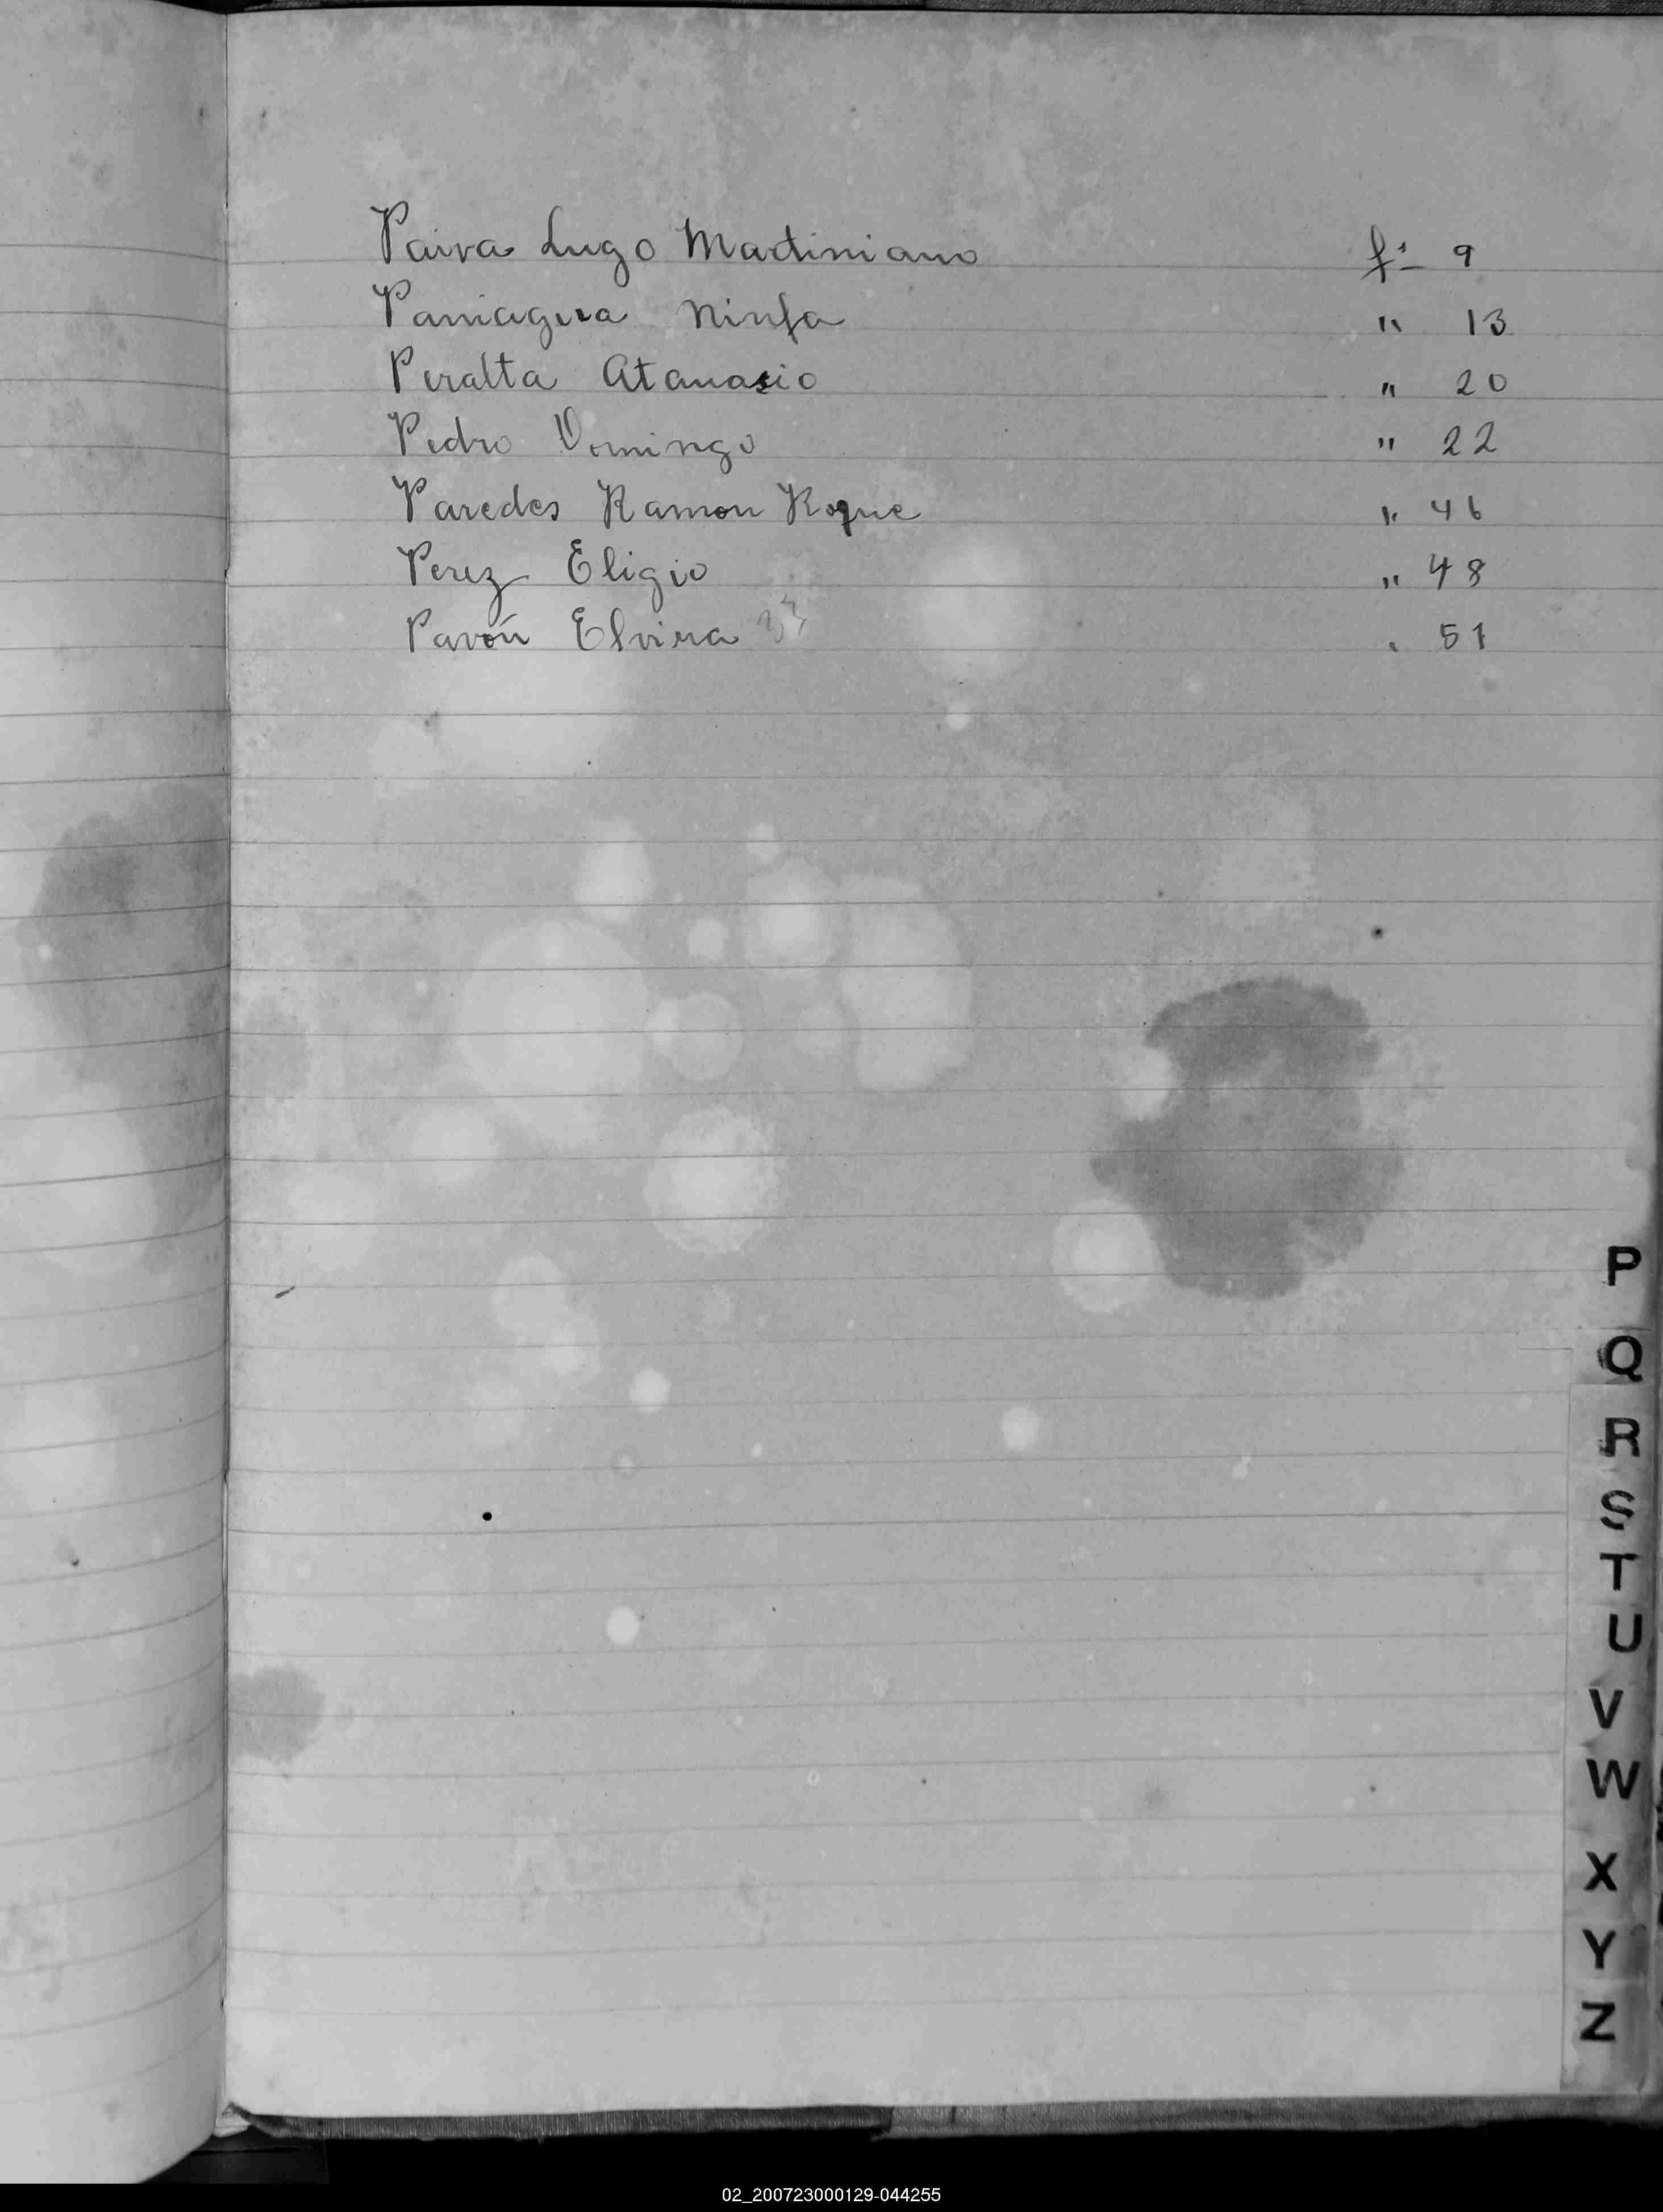 Paiva Lugo Martiniano f: 9
Paniagua Ninfa " 13
Peralta Atanasio " 20
Pedro Domingo " 22
Paredes Ramon Roque " 46
Perez Eligio " 48
Pavón Elvira " 51
P
Q
R
S
T
U
V
W
X
Y
Z
02_200723000129-044255